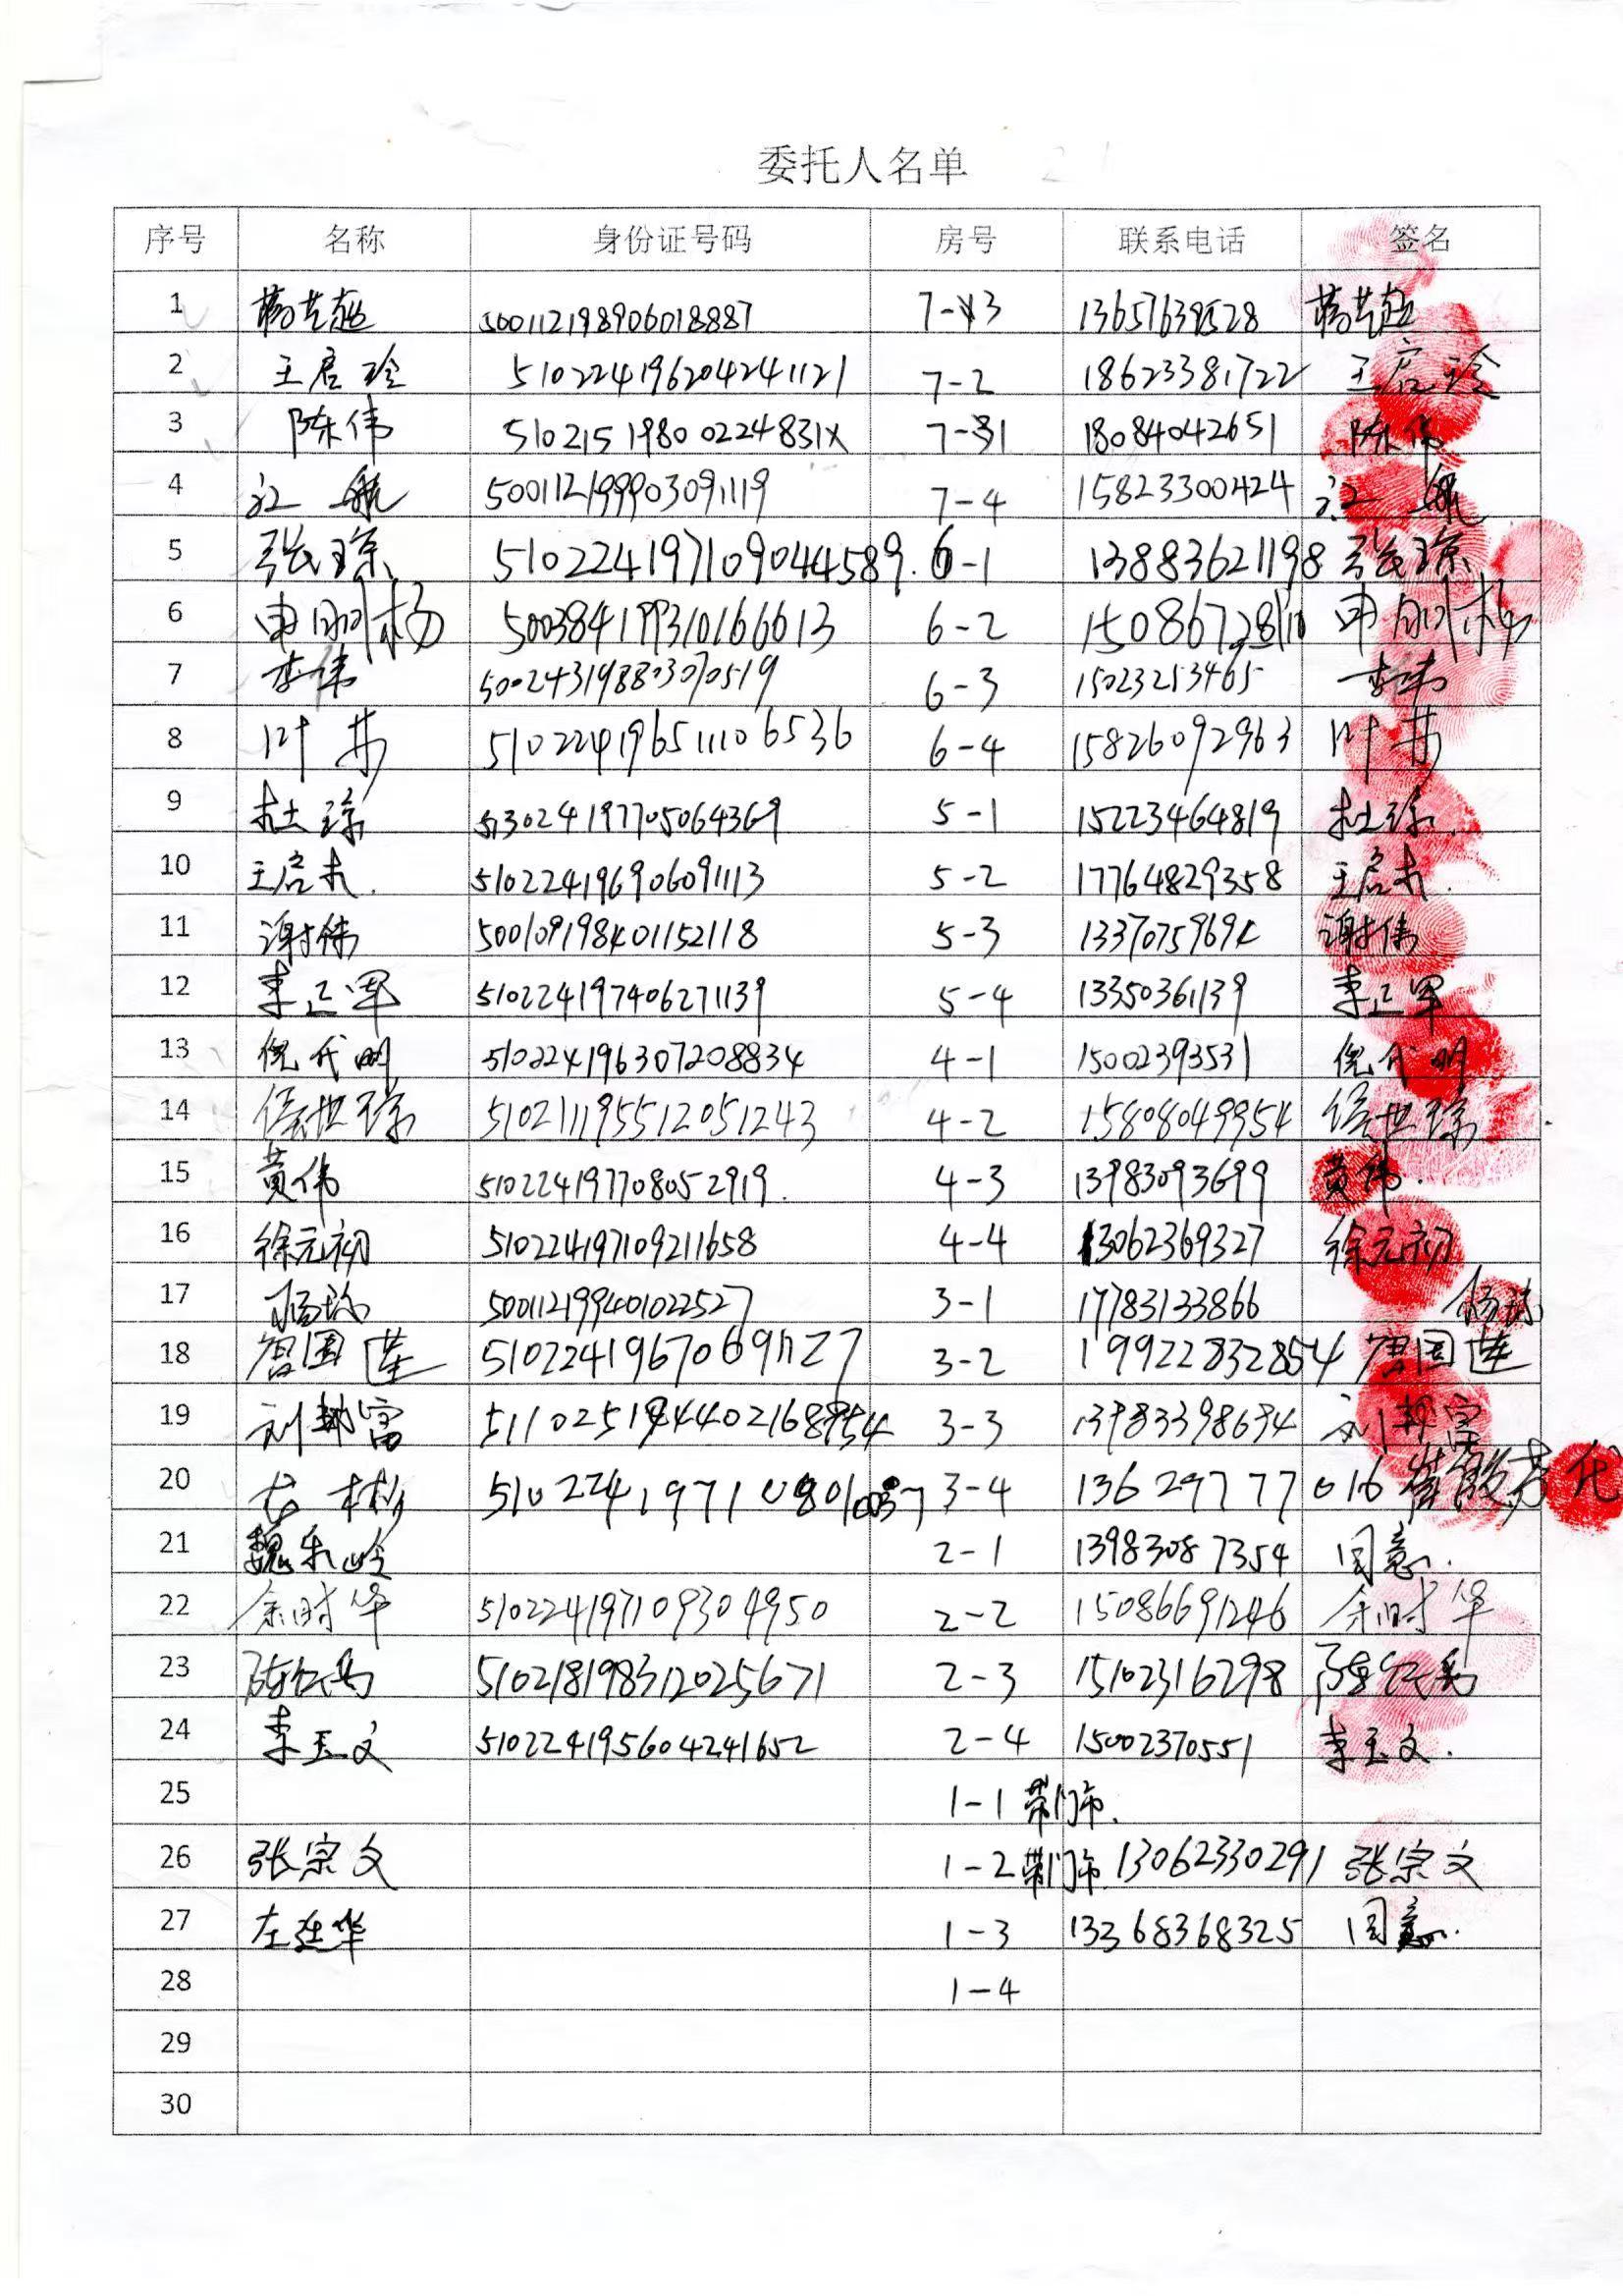 委托人名单
序号 名称 身份证号码 房号 联系电话 签名
1 500112198906018887 7-3
2 王启玲 510224196204241121 7-2 18623381722 王启玲
3 陈伟 51021519800224831X 7-1 18084042651 陈伟
4 江航 500112199903091119 7-4 15823300424 江航
5 张琼 510224197109044589 6-1 13883621198 张琼
6 申刚杨 500384199310166613 6-2 申刚杨
7 李伟 500243198803070519 6-3 15023253465 李伟
8 叶 510224196511106536 6-4 15826092963 叶
9 杜琼 513024197705064369 5-1 15223464819 杜琼
10 王启 510224196906091113 5-2 17764829358 王启
11 谢伟 500109198401152118 5-3 谢伟
12 李正军 510224197406271139 5-4 13350361139 李正军
13 倪代明 510224196307208834 4-1 15002393531 倪代明
14 世琼 510211195512051243 4-2 15808049954 世琼
15 黄伟 510224197708052919 4-3 13983093699 黄伟
16 徐元初 510224197109211658 4-4 13062369327 徐元初
17 杨 500112199401022527 3-1 17783133866 杨
18 国莲 3-2 国莲
19 刘 富 3-3 13983398694 刘 富
20 3-4 13629777016 代
21 魏 2-1 13983087354 同意.
22 余时华 510224197109304950 2-2 15086691246 余时华
23 陈 510218198312025671 2-3 15102316298 陈
24 李玉文 510224195604241652 2-4 15002370551 李玉文.
25 1-1 带门市.
26 张宗文 1-2 带门市. 13062330291 张宗文
27 左廷华 1-3 13368368325 同意.
28 1-4
29
30